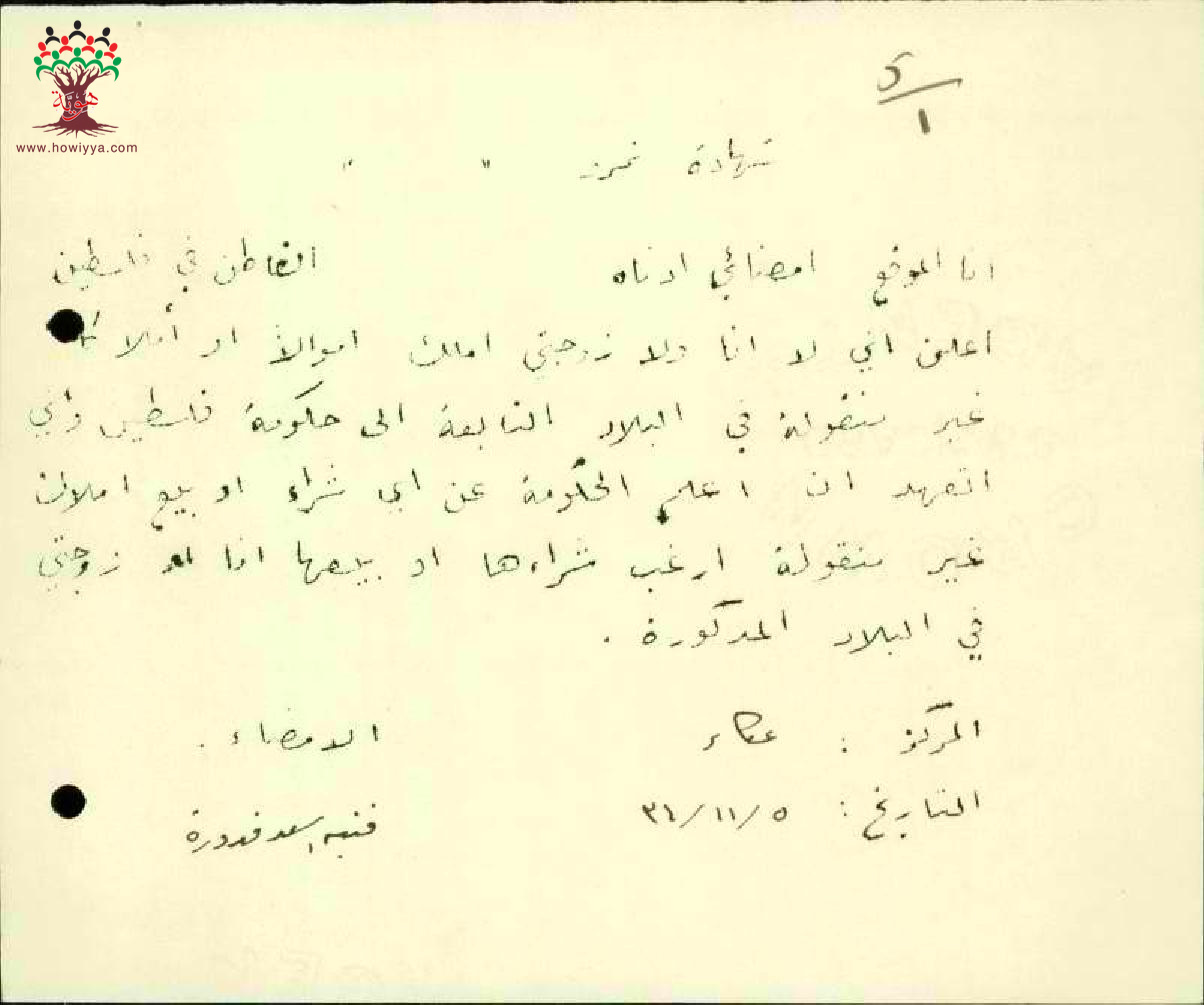 هوية
www.howiyya.com
5
1
شهادة نمرة " "
انا الموقع امضائي ادناه القاطن في فلسطين
اعلن اني لا انا ولا زوجتي املك اموالاً او أملاكا
غير منقولة في البلاد التابعة الى حكومة فلسطين وأني
اتعهد ان اعلم الحكومة عن اي شراء او بيع املاك
غير منقولة ارغب شراءها او بيعها انا او زوجتي
في البلاد المذكورة .
المركز : عكا الامضاء .
التاريخ : ٥/١١/٣١ اسعد قدورة